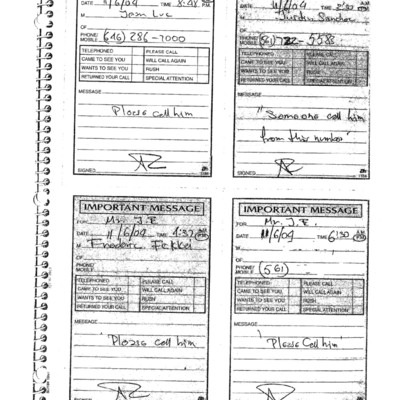 DATE 11/6/09 TIME 8:48
M
OF
PHONE/
MOBILE (646) 286-7000
TELEPHONED PLEASE CALL
CAME TO SEE YOU WILL CALL AGAIN
WANTS TO SEE YOU RUSH
RETURNED YOUR CALL SPECIAL ATTENTION
MESSAGE
Please call him
SIGNED
DATE 11/6/09 TIME
M Sanchez
OF
PHONE/
MOBILE
TELEPHONED PLEASE CALL
CAME TO SEE YOU WILL CALL AGAIN
WANTS TO SEE YOU RUSH
RETURNED YOUR CALL SPECIAL ATTENTION
MESSAGE
"Someone call him
from this number"
SIGNED
IMPORTANT MESSAGE
FOR Mr. J.E.
DATE 11/6/09 TIME 4:32
M Frederic Fekkai
OF
PHONE/
MOBILE
TELEPHONED PLEASE CALL
CAME TO SEE YOU WILL CALL AGAIN
WANTS TO SEE YOU RUSH
RETURNED YOUR CALL SPECIAL ATTENTION
MESSAGE
"Please call him
SIGNED
IMPORTANT MESSAGE
FOR Mr. J.E.
DATE 11/6/09 TIME 6:30
M
OF
PHONE/
MOBILE (561)
TELEPHONED PLEASE CALL
CAME TO SEE YOU WILL CALL AGAIN
WANTS TO SEE YOU RUSH
RETURNED YOUR CALL SPECIAL ATTENTION
MESSAGE
"Please Call him
SIGNED